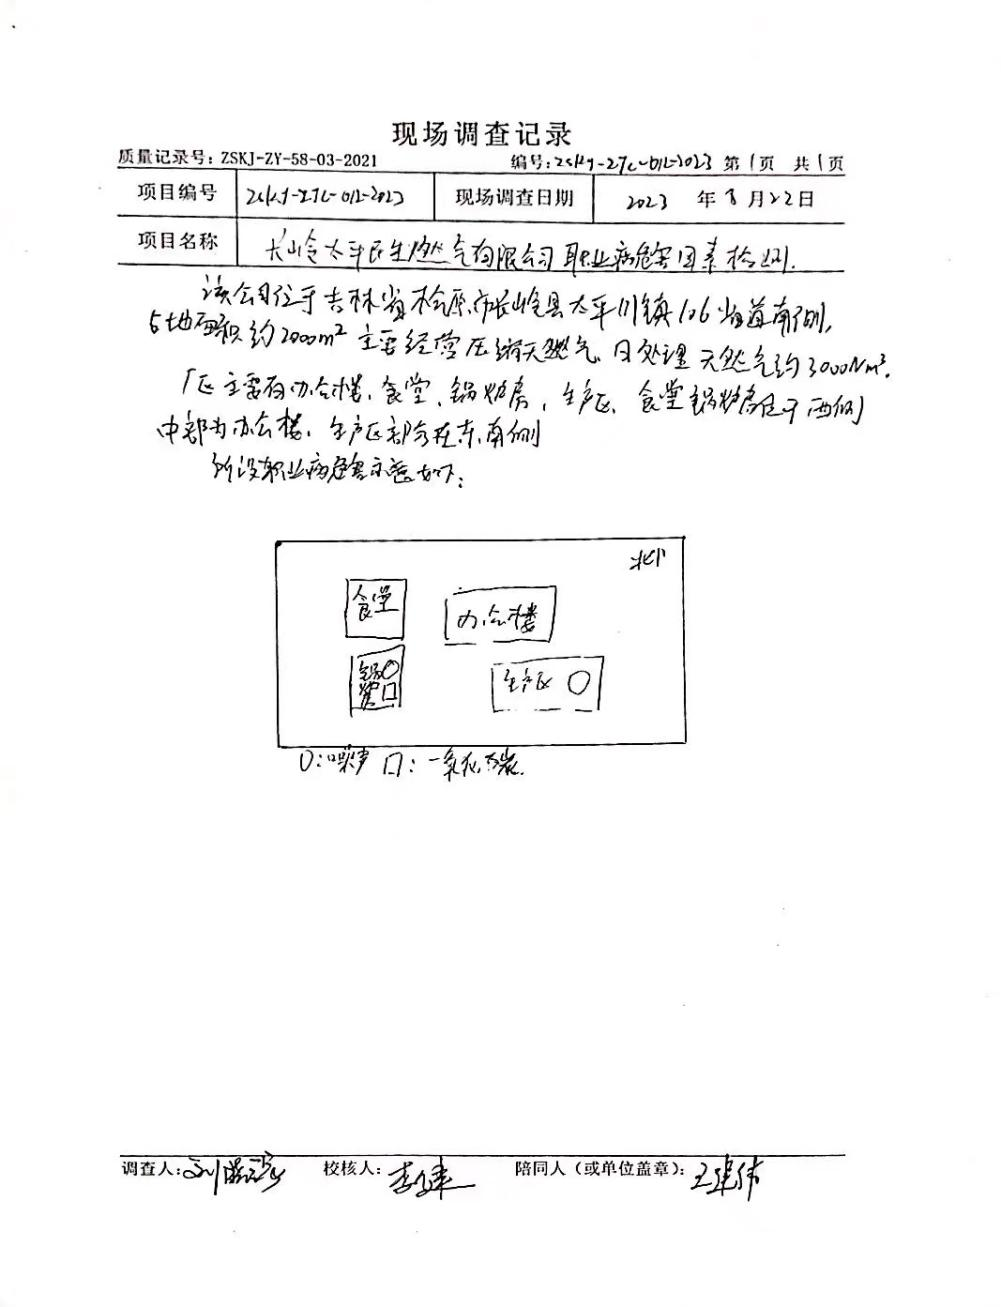 现场调查记录
质量记录号：ZSKJ-ZY-58-03-2021 编号：ZSKJ-ZJC-012-2023 第1页 共1页
项目编号 ZSKJ-ZJC-012-2023 现场调查日期 2023 年 8 月 22 日
项目名称 长岭太平民生燃气有限公司职业病危害因素检测.
该公司位于吉林省松原市长岭县太平川镇106省道南侧,
占地面积约2000m² 主要经营压缩天然气,日处理天然气约3000Nm³.
厂区主要有办公楼、食堂、锅炉房、生产区、食堂锅炉房位于西侧
中部为办公楼、生产区部分在东南侧
所设职业病危害示意如下：
北
食堂
办公楼
锅炉房
生产区
○:噪声 □：一氧化碳.
调查人： 校核人： 陪同人（或单位盖章）：王建伟